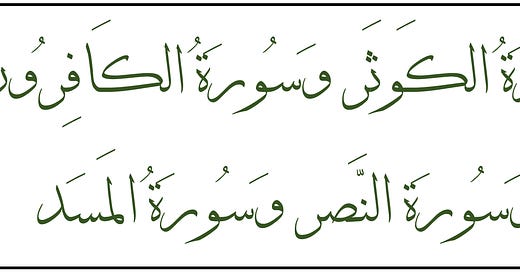 ةُ الكَوثَر وَسُورَةُ الكَافِرُور
وَسُورَةُ النَّصر وَسُورَةُ المَسَد